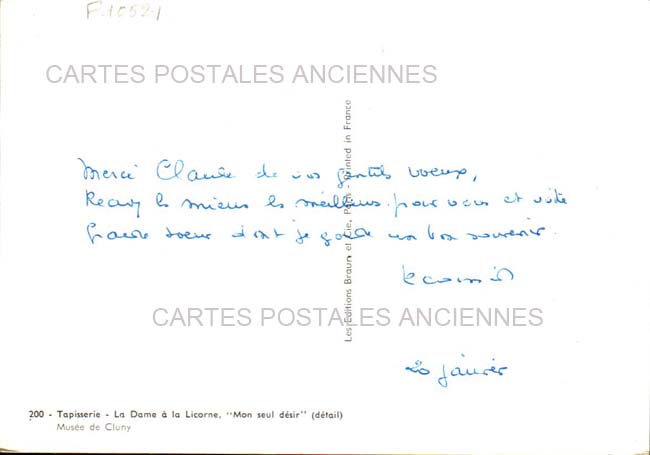 F.10521
CARTES POSTALES ANCIENNES
Merci Claude de vos gentils voeux,
Recevez les miens les meilleurs pour vous et votre
grande soeur dont je garde un bon souvenir.
CARTES POSTALES ANCIENNES
20 Janvier
Les Editions Braun et Cie, Paris Printed in France
200 - Tapisserie - La Dame à la Licorne, "Mon seul désir" (détail)
Musée de Cluny